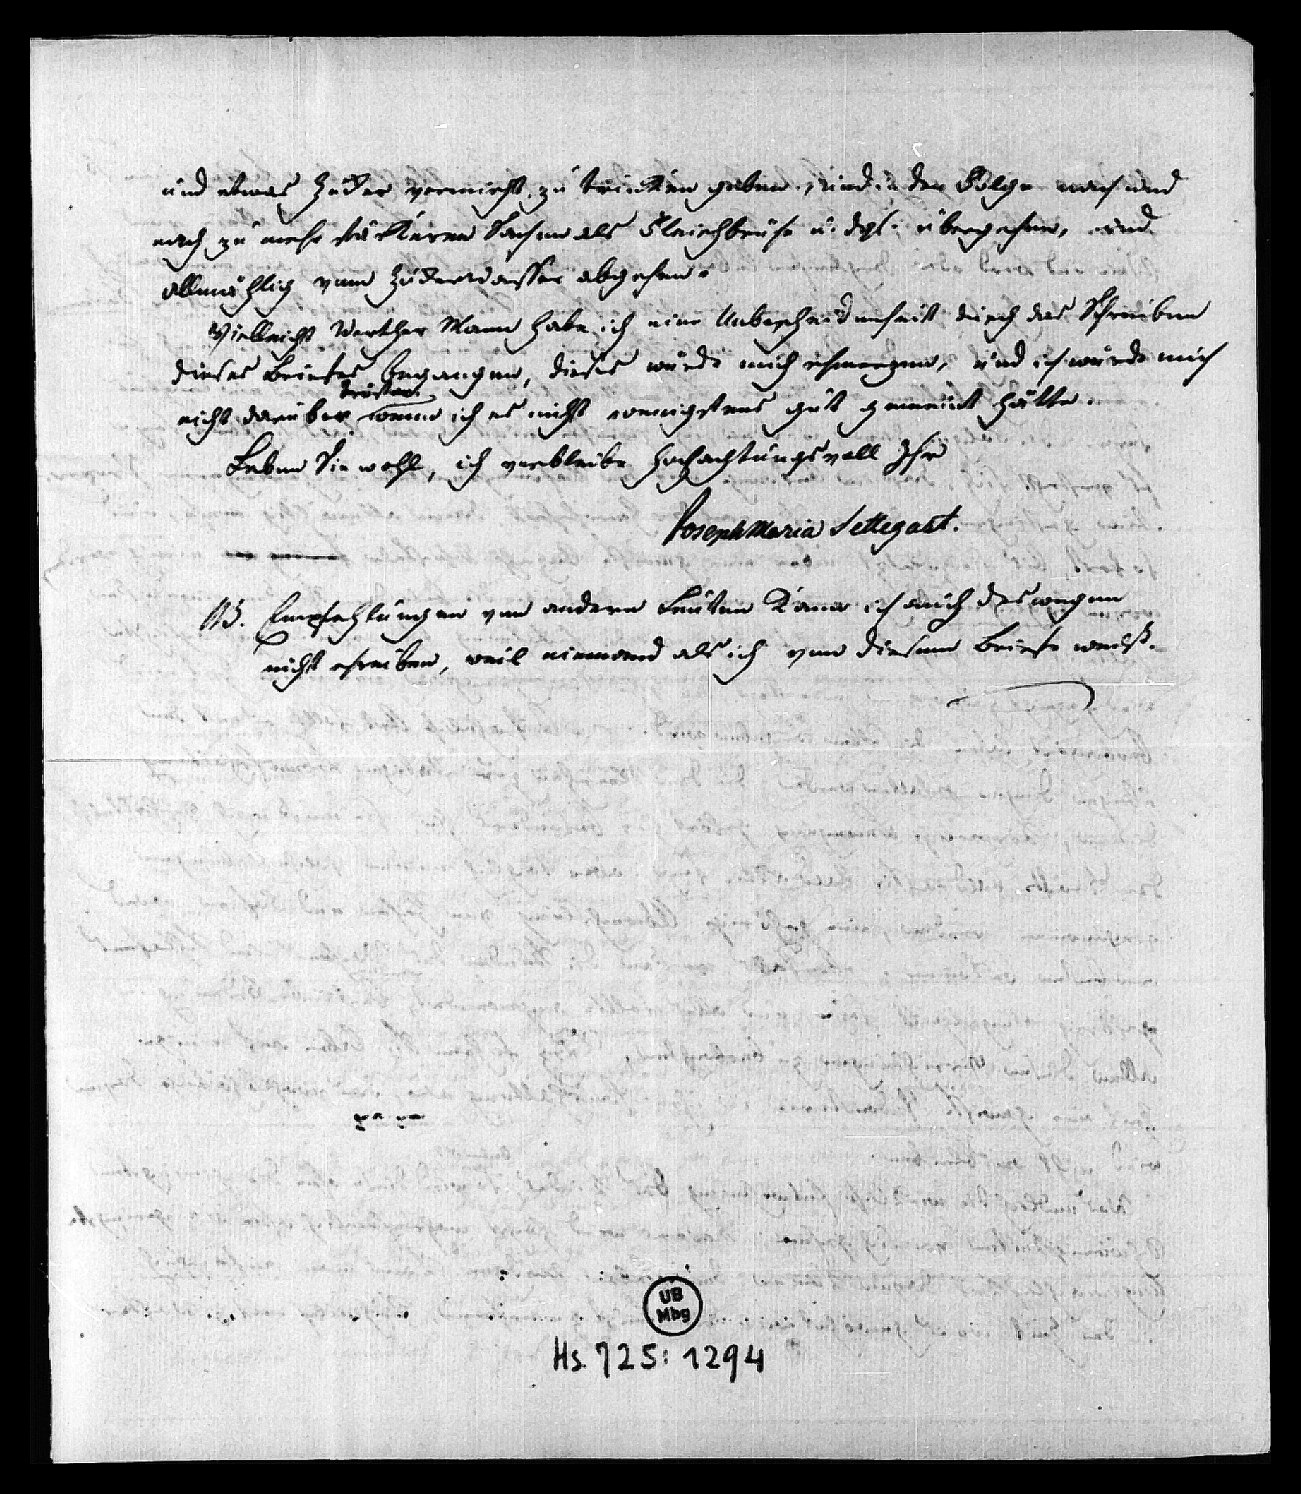 und etwas Zucker vermischt zu trincken geben, und in der Folge nach und
nach zu mehr stärkeren Sachen als Fleischbrühe u. dgl. übergehen, und
allmählich vom Zuckerwasser abgehen.
Vielleicht werther Mann habe ich eine Unbescheidenheit durch das Schreiben
dieses Briefes begangen, dieses würde mich schmerzen, und ich würde mich
nicht darüber trösten wenn ich es nicht wenigstens gut gemeint hätte.
Leben Sie wohl, ich verbleibe hochachtungsvoll Ihr
Joseph Maria Settegast.
NB. Empfehlungen von andern Leuten kann ich auch deswegen
nicht schreiben, weil niemand als ich von diesem Briefe weiß.
UB
Mbg
Hs. 725: 1294